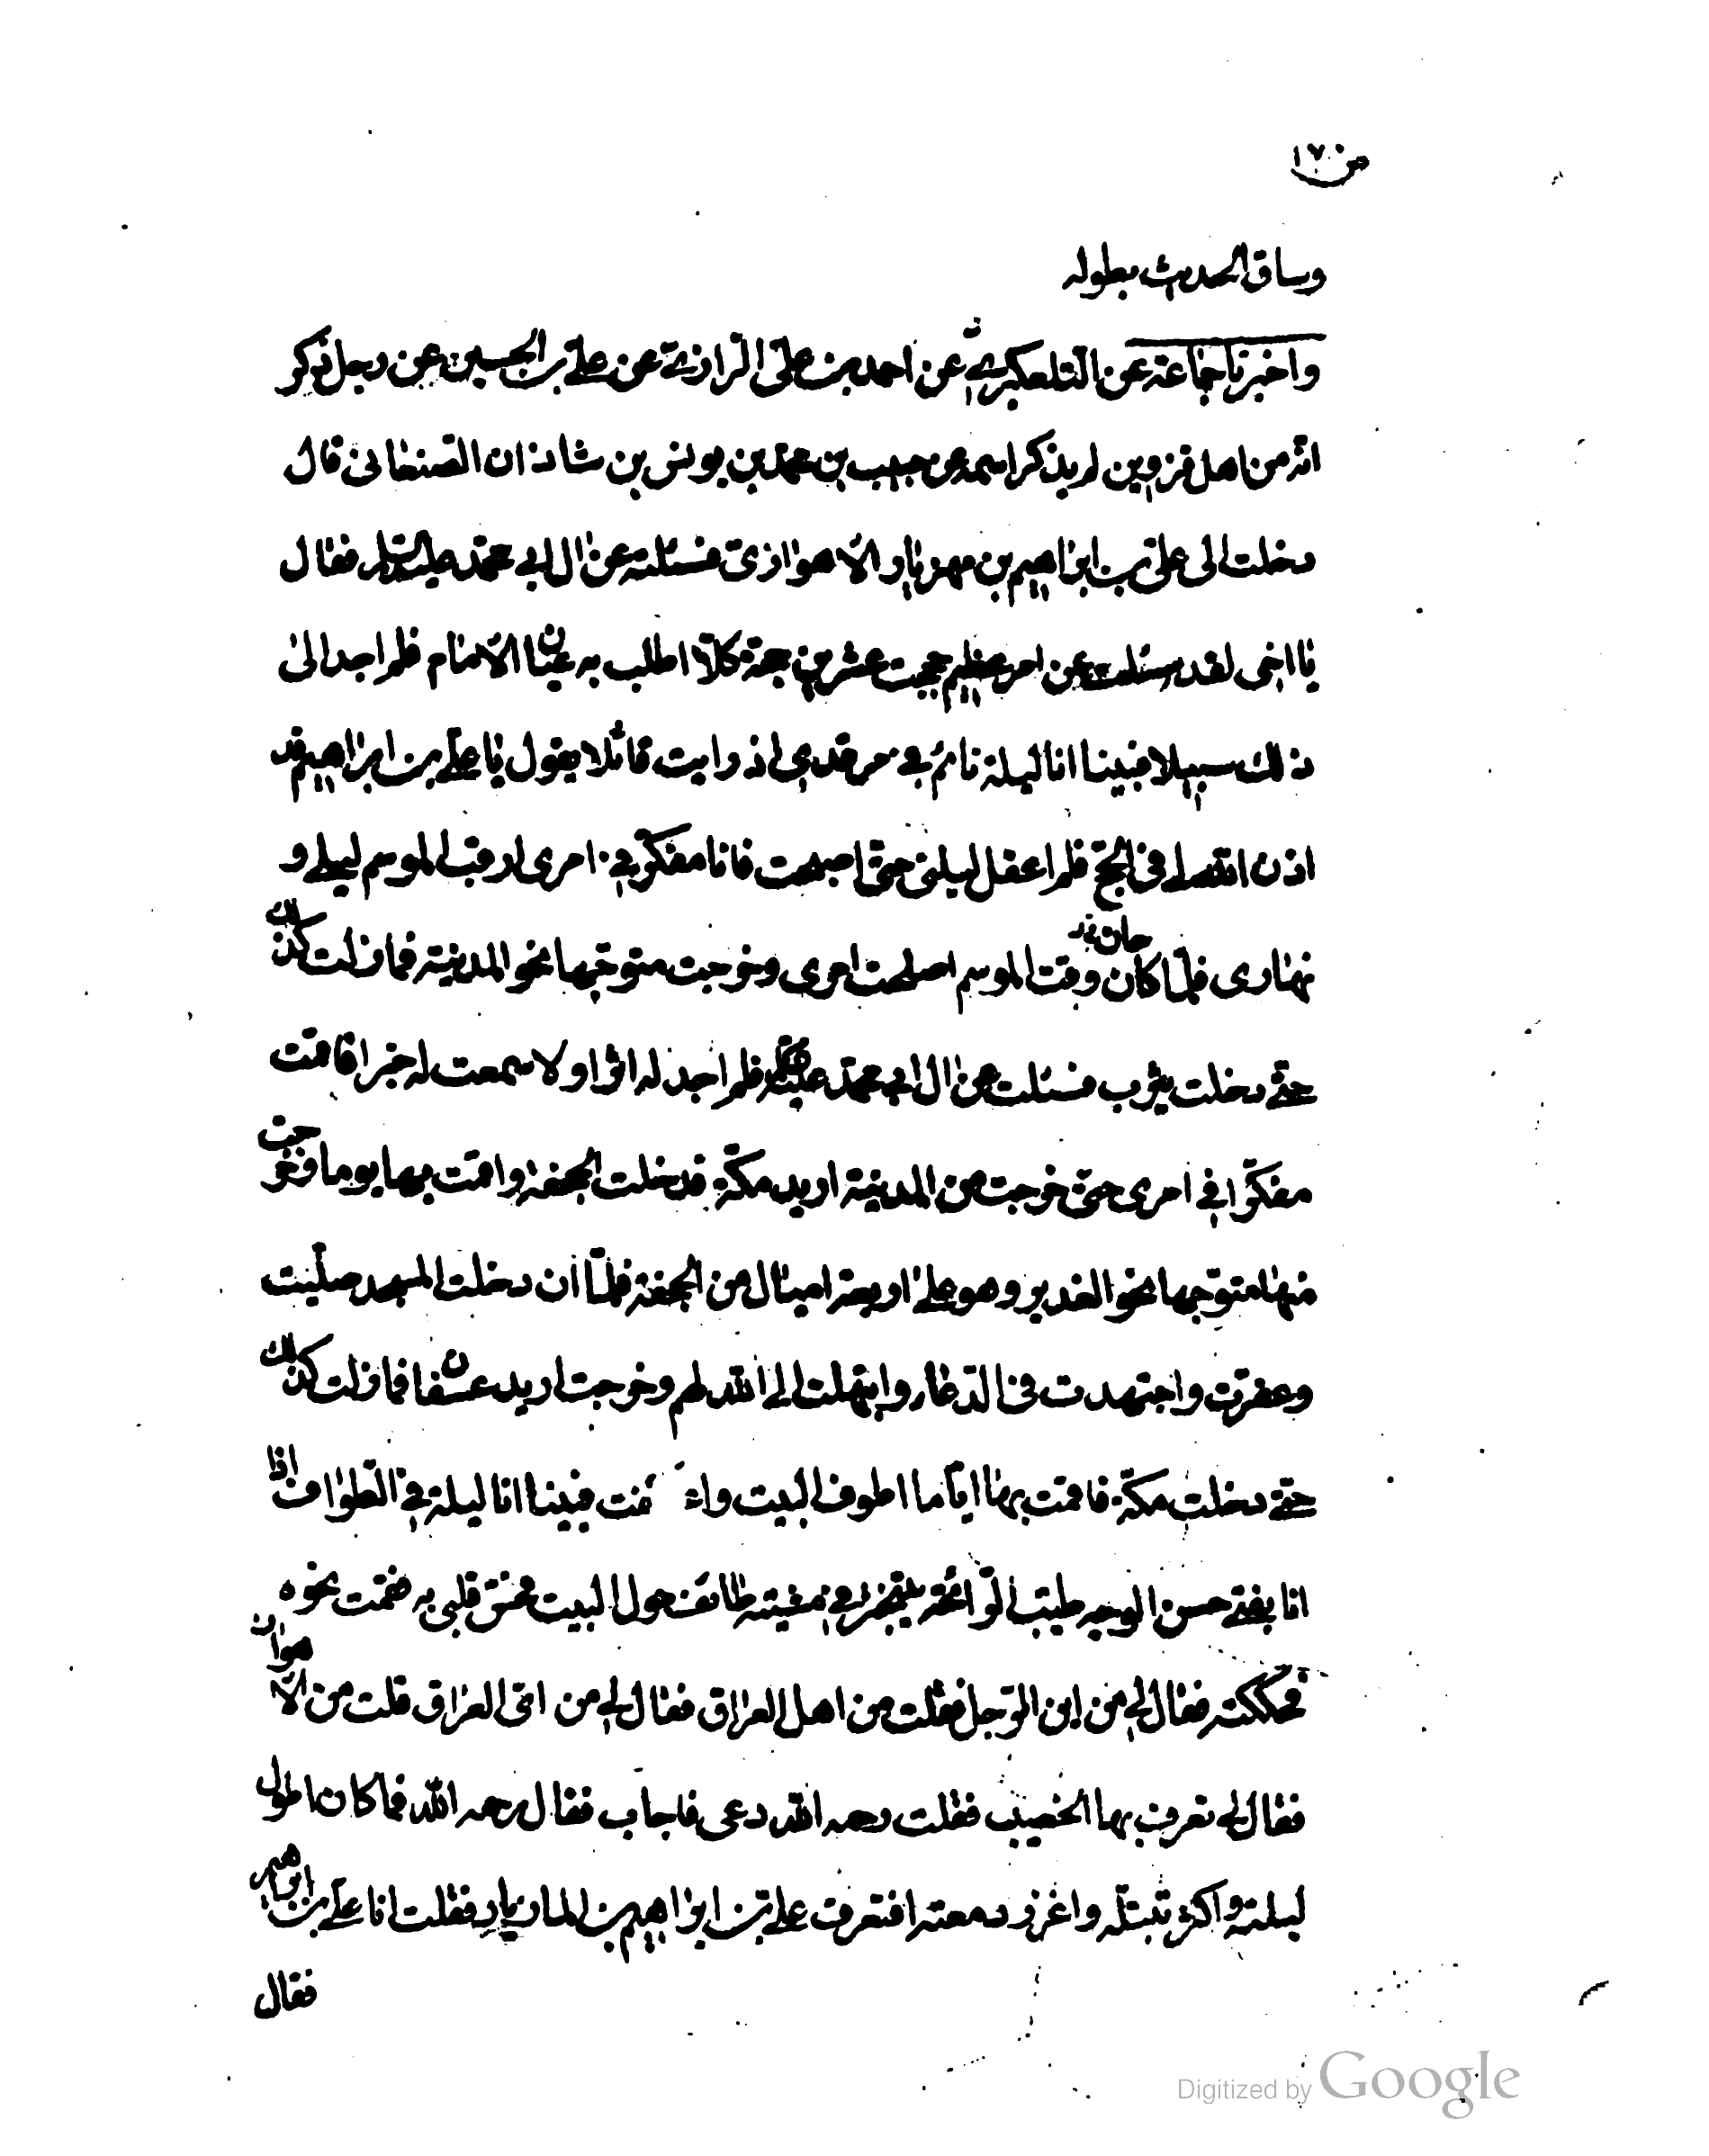 ص ١٧٠
وساق الحديث بطوله
واخبرنا جماعة عن التلعكبرى عن احمد بن على الرازى عن على بن الحسين عن رجل ذكر
انه من اهل قزوين لم يذكر اسمه عن حبيب بن محمد بن يونس بن شاذان الصنعانى قال
دخلت الى على بن ابراهيم بن مهزيار الاهوازى فسئلته عن ال ابى محمد عليه السلام فقال
يا اخى لقد سئلت عن امر عظيم حججت عشرين حجة كلاّ اطلب به عيان الامام فلم اجد الى
ذلك سبيلا فبينا انا ليلة نائم فى مرقدى اذ رايت قائلا يقول يا على بن ابراهيم قد
اذن الله لى فى الحج فلم اعقل ليلتى حتى اصبحت فانا مفكر فى امرى ارقب الموسم ليلى و
نهارى فلما كان حان وقت الموسم اصلحت امرى وخرجت متوجها نحو المدينة فما زلت كذلك
حتى دخلت يثرب فسئلت عن ال ابى محمد عليه السلام فلم اجد له اثرا ولا سمعت له خبرا فاقمت
مفكرا فى امرى حتى خرجت من المدينة اريد مكة فدخلت الجحفة واقمت بها يوما وخرجت
منها متوجها نحو الغدير وهو على اربعة اميال من الجحفة فلما ان دخلت المسجد صليت
وعفرت واجتهدت فى الدعاء وابتهلت الى الله لهم وخرجت اريد عسفان فما زلت كذلك
حتى دخلت مكة فاقمت بها اياما اطوف البيت واعتكفت فبينا انا ليلة فى الطواف اذا
انا بفتى حسن الوجه طيب الرائحة يتبختر فى مشيته طائف حول البيت فحس قلبى به فقمت نحوه
فحككته فقال لى من اين الرجل فقلت من اهل العراق فقال لى من اى العراق قلت من الاهواز
فقال لى تعرف بها الخصيب فقلت رحمه الله دعى فاجاب فقال رحمه الله فما كان اطول
ليلته واكثر تبتله واغزر دمعته افتعرف على بن ابراهيم بن المازيار فقلت انا على بن ابراهيم
فقال
Digitized by Google